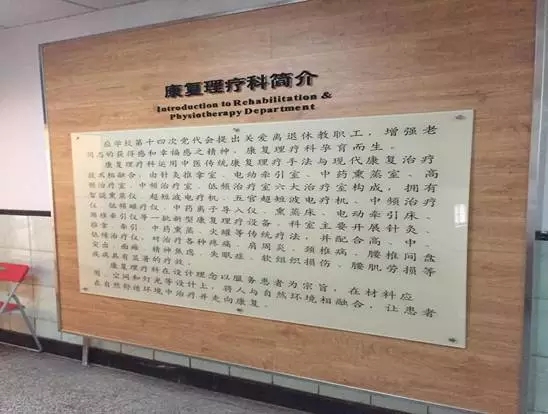 康复理疗科简介
Introduction to Rehabilitation &
Physiotherapy Department
应学校第十四次党代会提出关爱离退休教职工，增强老
同志的获得感和幸福感之精神，康复理疗科孕育而生。
康复理疗科运用中医传统康复理疗手法与现代康复治疗
技术相融合，由针灸推拿室、电动牵引室、中药熏蒸室、高
频治疗室、中频治疗室、低频治疗室六大治疗室构成，拥有
智能熏蒸仪、超短波电疗机、五官超短波电疗机、中频治疗
仪、低频磁疗仪、中药离子导入仪、熏蒸床、电动牵引床、
颈椎牵引仪等一批新型康复理疗设备。科室主要开展针灸、
推拿、牵引、中药熏蒸、火罐等传统疗法，并配合高、中、
低频治疗仪，对治疗各种疼痛、肩周炎、颈椎病、腰椎间盘
突出、面瘫、精神焦虑、失眠症、软组织损伤、腰肌劳损等
疾病具有显著的疗效。
康复理疗科在设计理念以服务患者为宗旨，在材料应
用、空间和灯光等设计上，将人与自然环境相融合，让患者
在自然舒适环境中治疗并走向康复。